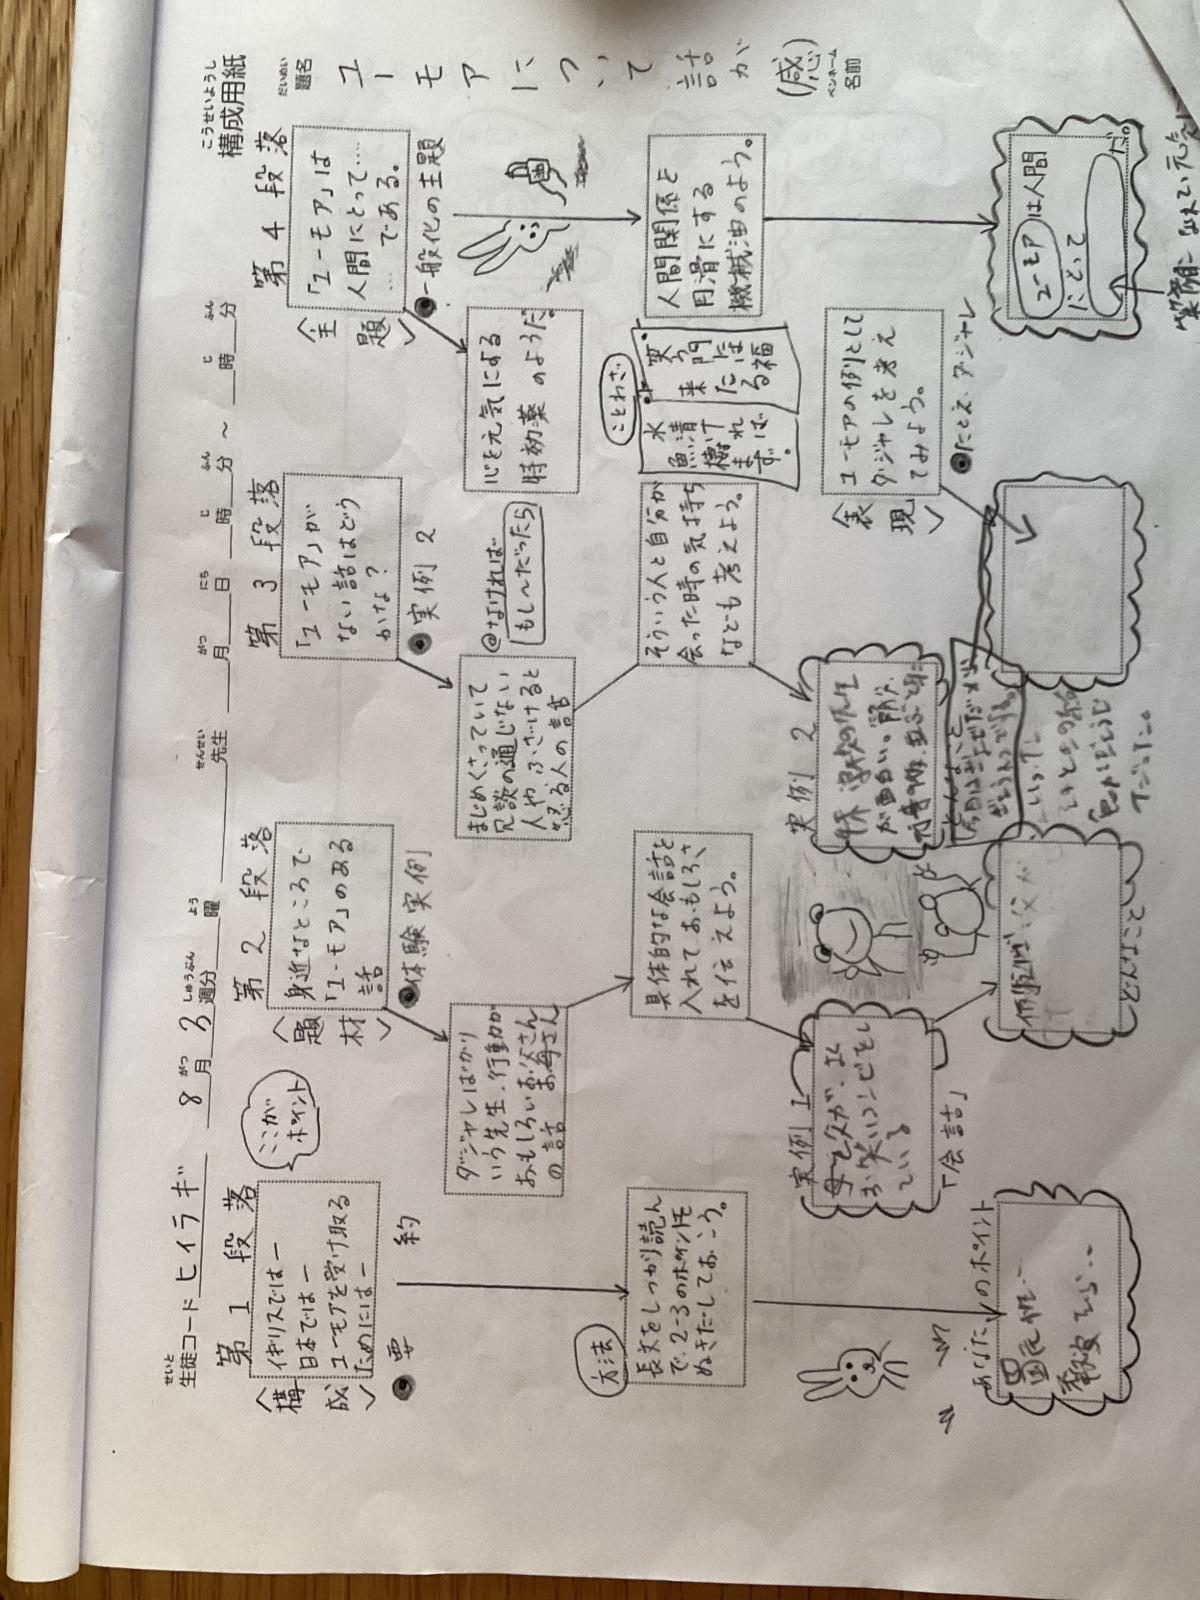 構成用紙
こうせいようし
題名
だいめい
ユーモアについて話が(感)
ペンネーム
名前
生徒コード ヒイラギ 8月3週分 曜 先生 月 日 時 分 〜 時 分
せいと
がつ
しゅうぶん
よう
せんせい
がつ
にち
じ
ふん
じ
ふん
第1段落
〈構成〉
イギリスではー
日本ではー
ユーモアを受け取る
ためにはー
ここが
ポイント
●要約
方法
長文をしっかり読ん
で、2-3のポイントを
ぬきだしておこう。
あなたのポイント
第2段落
〈題材〉
身近なところで
「ユーモア」のある
話
●体験実例
ダジャレばかり
いう先生、行動が
おもしろいお父さん
お母さん
の話
具体的な会話を
入れておもしろさ
を伝えよう。
実例1
母と父が、よく
お笑いコンビをし
ている
「会話」
例えば、父が
どんなこと
第3段落
「ユーモア」が
ない話はどう
かな?
●実例2
@なければ
もし〜だったら
まじめくさっていて
冗談の通じない
人や、ふざけると
怒る人の話
そういう人と自分が
会った時の気持ち
なども考えよう。
実例2
が面白い。
といった。
第4段落
〈主題〉
「ユーモア」は
人間にとって……
……である。
●一般化の主題
心を元気にする
特効薬のようだ。
人間関係を
円滑にする
機械油のよう。
ことわざ
笑う門には
福来たる
水清ければ
魚棲まず。
〈表現〉
ユーモアの例として
ダジャレを考え
てみよう。
●たとえ・ダジャレ
ユーモアは人間
にとって
だ。